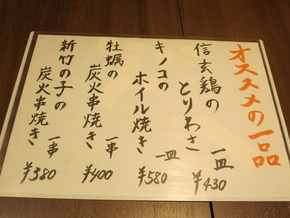 オススメの一品
信玄鶏の
とりわさ
一皿
¥430
キノコの
ホイル焼き
一皿
¥580
牡蠣の
炭火串焼き
一串
¥400
新竹の子の
炭火串焼き
一串
¥380